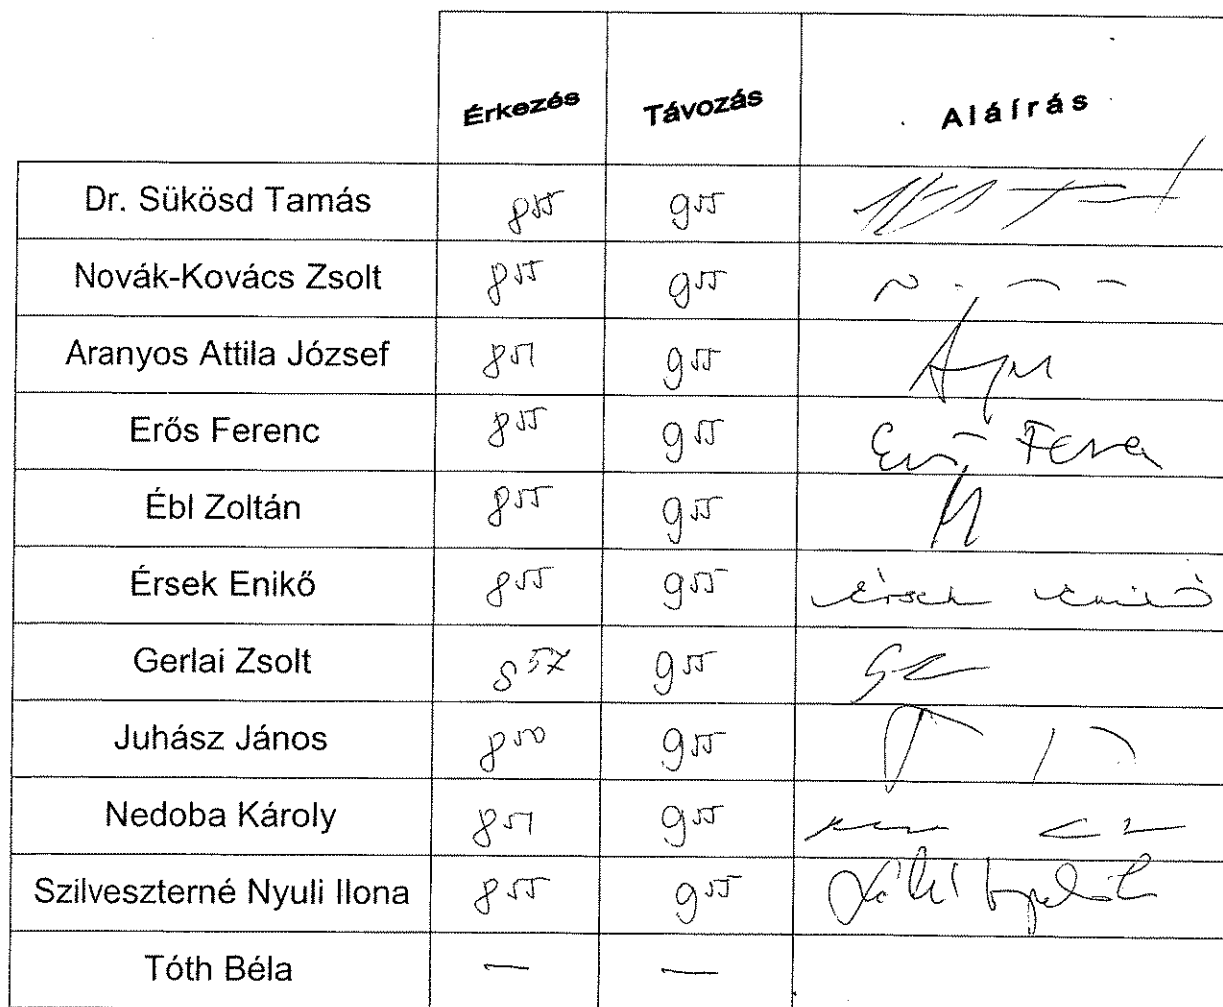 Érkezés Távozás Aláírás
Dr. Sükösd Tamás 8 55 9 55
Novák-Kovács Zsolt 8 55 9 55
Aranyos Attila József 8 51 9 55
Erős Ferenc 8 55 9 55
Ébl Zoltán 8 55 9 55
Érsek Enikő 8 55 9 55 Érsek Enikő
Gerlai Zsolt 8 57 9 55
Juhász János 8 50 9 55
Nedoba Károly 8 51 9 55
Szilveszterné Nyuli Ilona 8 55 9 55
Tóth Béla — —